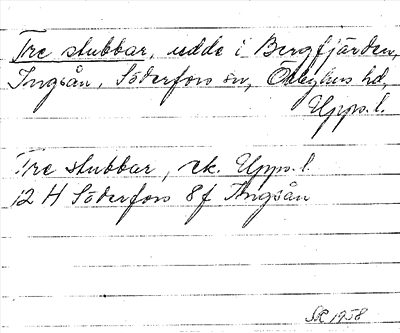 Tre stubbar, udde i Bergfjärden,
Ingsån, Söderfors sn, Örbyhus hd,
Upps. l.
Tre stubbar, ek. Upps. l.
12 H Söderfors 8f Ängsån
1958